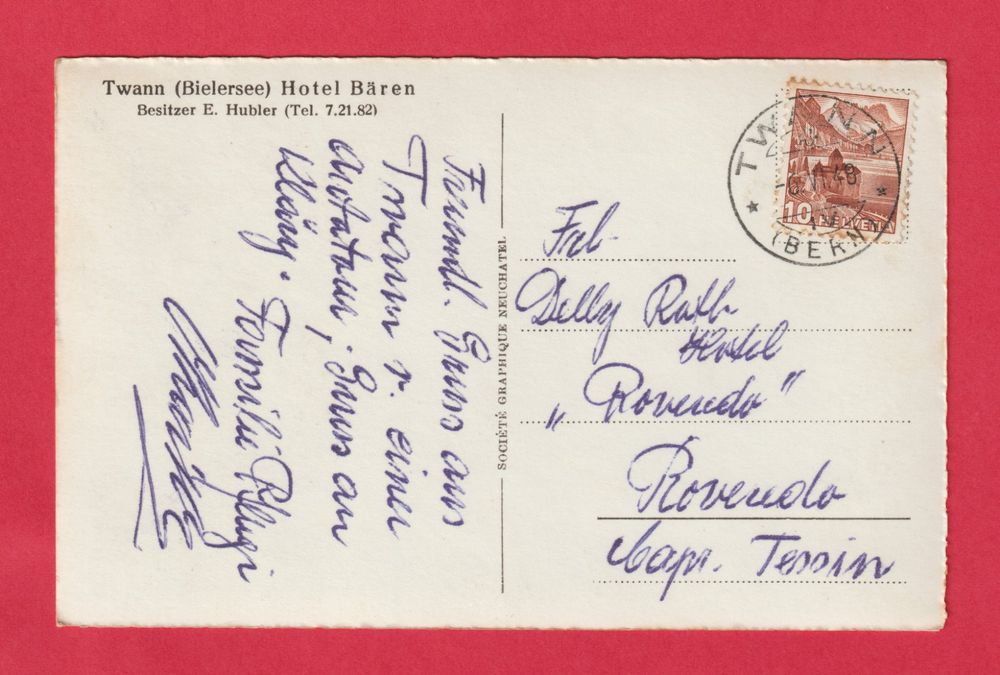 Twann (Bielersee) Hotel Bären
Besitzer E. Hubler (Tel. 7.21.82)
Freundl. Gruss aus
Twann v. einer
Autotour, Gruss an
Kläry.
Familie
SOCIÉTÉ GRAPHIQUE NEUCHATEL
TWANN
VI.48
(BERN)
10 HELVETIA
Frl.
Delly Roth
Hotel
„Roveredo"
Roveredo
Capr. Tessin